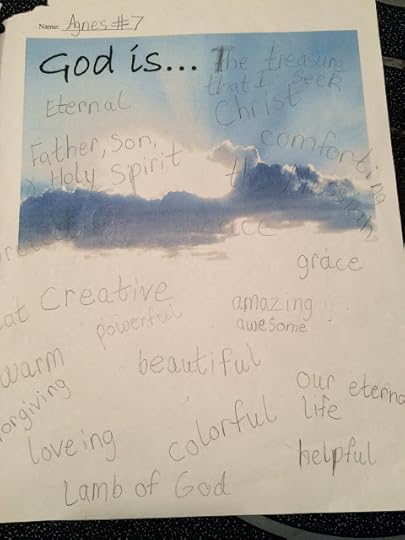 Name: Agnes #7
God is... The treasure
that I seek
Eternal
Christ
comforting
Father, Son,
Holy Spirit
the Messiah
grace
Creative
powerful
amazing
awesome
warm
beautiful
our eterna
life
forgiving
colorful
loveing
helpful
Lamb of God